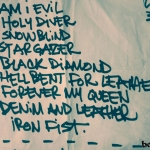 AM I EVIL
HOLY DIVER
SNOWBLIND
STARGAZER
BLACK DIAMOND
HELL BENT FOR LEATHER
FOREVER MY QUEEN
DENIM AND LEATHER
IRON FIST.